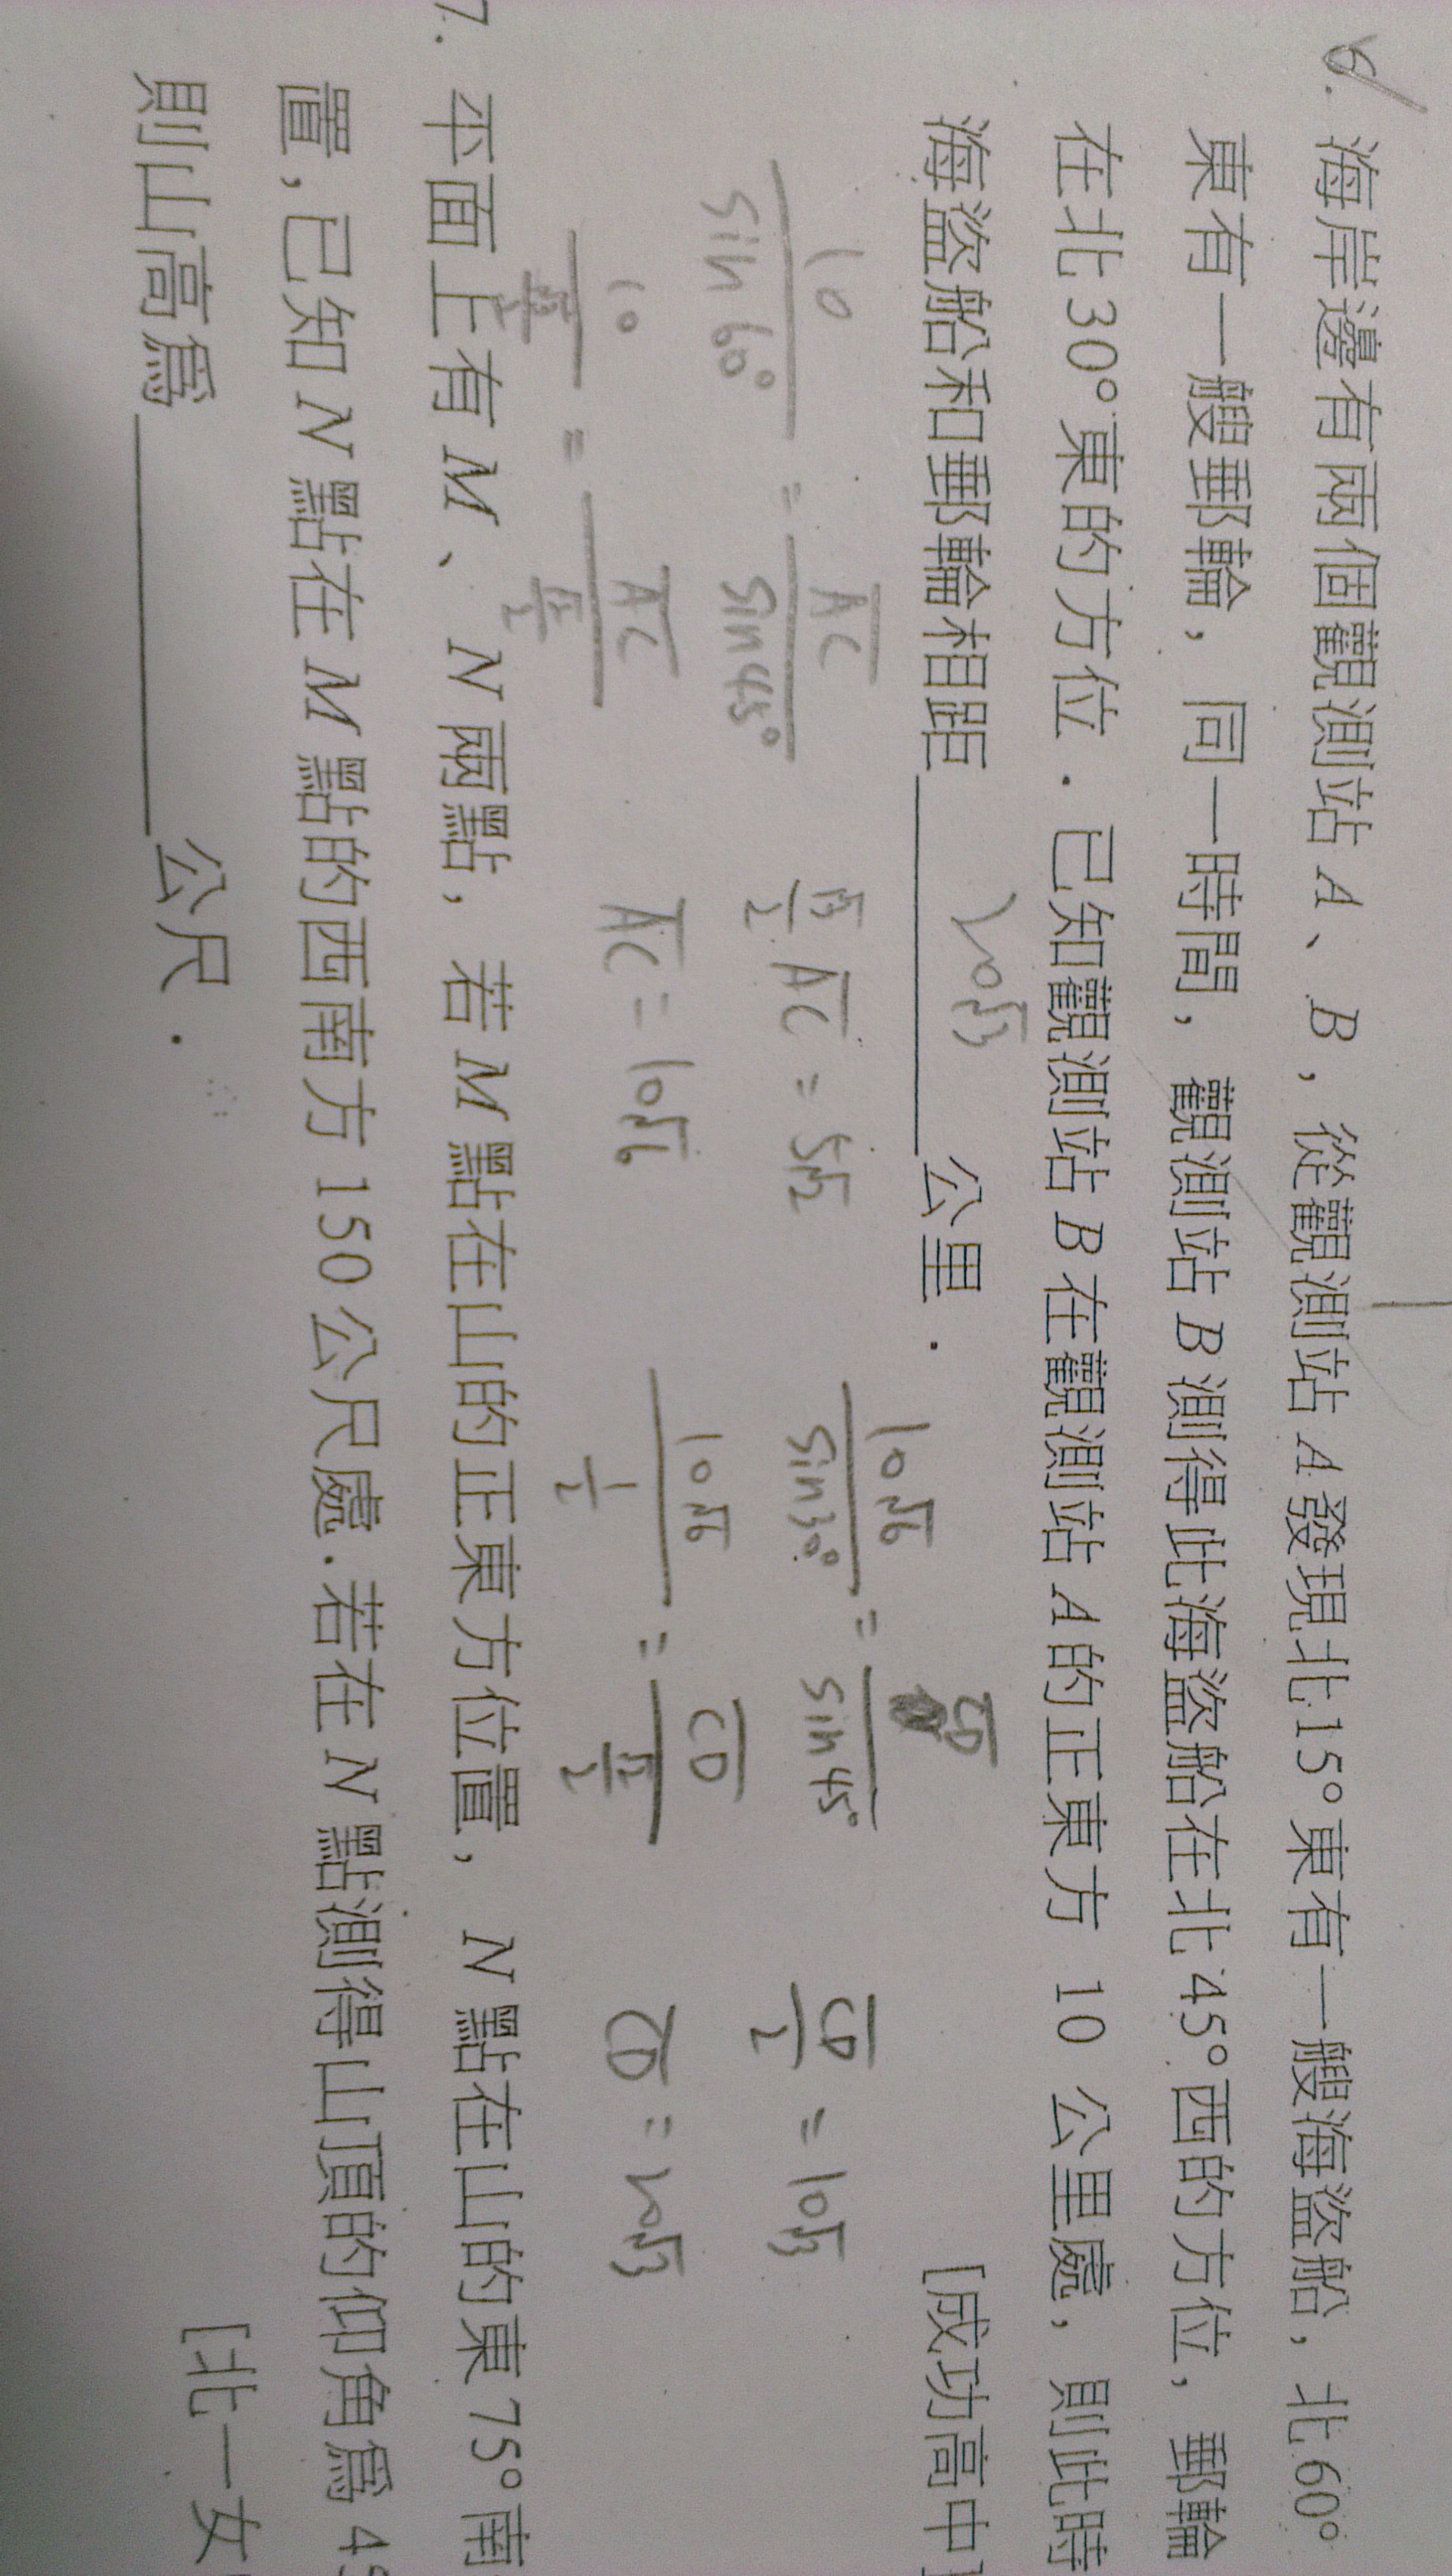 6. 海岸邊有兩個觀測站 A、B, 從觀測站 A 發現北 15° 東有一艘海盜船, 北 60°
東有一艘郵輪, 同一時間, 觀測站 B 測得此海盜船在北 45° 西的方位, 郵輪
在北 30° 東的方位. 已知觀測站 B 在觀測站 A 的正東方 10 公里處, 則此時
海盜船和郵輪相距 20√3 公里. [成功高中]
10/sin60° = AC/sin45° √3/2 · AC = 5√2 10√6/sin30° = CD/sin45° CD/2 = 10√3
10/(√3/2) = AC/(√2/2) AC = 10√6 10√6/(1/2) = CD/(√2/2) CD = 20√3
7. 平面上有 M、N 兩點, 若 M 點在山的正東方位置, N 點在山的東 75° 南
置, 已知 N 點在 M 點的西南方 150 公尺處. 若在 N 點測得山頂的仰角為 45
則山高為 公尺. [北一女